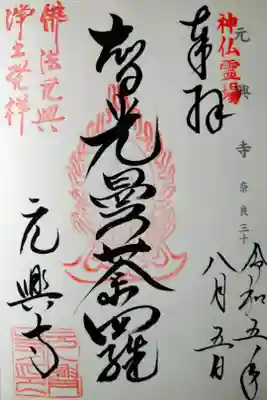 奉拝
神仏霊場
元興寺
奈良三十
令和五年
八月五日
智光曼荼羅
元興寺
佛法元興
浄土発祥